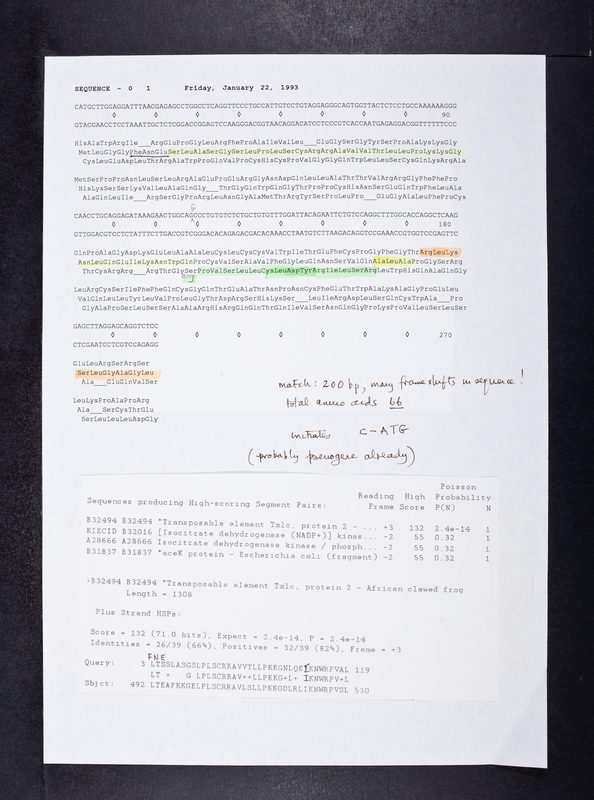 SEQUENCE - 0 1 Friday, January 22, 1993
CATGCTTGGAGGATTTAACGAGAGCCTGGCCTCAGGTTCCCTGCCATTGTCCTGTAGGAGGGCAGTGGTTACTCTCCTGCCAAAAAAGGG
90
GTACGAACCTCCTAAATTGCTCTCGGACCGGAGTCCAAGGGACGGTAACAGGACATCCTCCCGTCACCAATGAGAGGACGGTTTTTTCCC
HisAlaTrpArgIle___ArgGluProGlyLeuArgPheProAlaIleValLeu___GluGlySerGlyTyrSerProAlaLysLysGly
MetLeuGlyGlyPheAsnGluSerLeuAlaSerGlySerLeuProLeuSerCysArgArgAlaValValThrLeuLeuProLysLysGly
CysLeuGluAspLeuThrArgAlaTrpProGlnValProCysHisCysProValGlyGlyGlnTrpLeuLeuSerCysGlnLysArgAla
MetSerProProAsnLeuSerLeuArgAlaGluProGluArgGlyAsnAspGlnLeuLeuAlaThrThrValArgArgGlyPhePhePro
HisLysSerSerLysValLeuAlaGlnGly___ThrGlyGlnTrpGlnGlyThrProProCysHisAsnSerGluGlnTrpPheLeuAla
AlaGlnLeuIle___ArgSerGlyProArgLeuAsnGlyAlaMetThrArgTyrSerProLeuPro___GluGlyAlaLeuPheProCys
G
CAACCTGCAGGAGATAAAGAACTGGCAGCCCTGTGTCTCTGCTGTGTTTGGATTACAGAATTCTGTCCAGGCTTTGGCACCAGGCTCAAG
180
GTTGGACGTCCTCTATTTCTTGACCGTCGGGACACAGAGACGACACAAACCTAATGTCTTAAGACAGGTCCGAAACCGTGGTCCGAGTTC
GlnProAlaGlyAspLysGluLeuAlaAlaLeuCysLeuCysCysValTrpIleThrGluPheCysProGlyPheGlyThrArgLeuLys
AsnLeuGlnGluIleLysAsnTrpGlnProCysValSerAlaValPheGlyLeuGlnAsnSerValGlnAlaLeuAlaProGlySerArg
ThrCysArgArg___ArgThrGlySerProValSerLeuLeuCysLeuAspTyrArgIleLeuSerArgLeuTrpHisGlnAlaGlnGly
Arg
LeuArgCysSerIlePhePheGlnCysGlyGlnThrGluAlaThrAsnProAsnCysPheGluThrTrpAlaLysAlaGlyProGluLeu
ValGlnLeuLeuTyrLeuValProLeuGlyThrAspArgSerHisLysSer___LeuIleArgAspLeuSerGlnCysTrpAla___Pro
GlyAlaProSerLeuSerSerAlaAlaArgHisArgGlnGlnThrGlnIleValSerAsnGlnGlyProLysProValLeuSerLeuSer
GAGCTTAGGAGCAGGTCTCC
270
CTCGAATCCTCGTCCAGAGG
GluLeuArgSerArgSer
SerLeuGlyAlaGlyLeu
Ala___GluGlnValSer
LeuLysProAlaProArg
Ala___SerCysThrGlu
SerLeuLeuLeuAspGly
match: 200 bp, many frameshifts in sequence!
total amino acids 66
initiates C-ATG
(probably pseudogene already)
Poisson
Reading High Probability
Sequences producing High-scoring Segment Pairs: Frame Score P(N) N
B32494 B32494 *Transposable element Txlc, protein 2 - ... +3 132 2.4e-14 1
KIECID B32016 [Isocitrate dehydrogenase (NADP+)] kinas... -2 55 0.32 1
A28666 A28666 Isocitrate dehydrogenase kinase / phosph... -2 55 0.32 1
B31837 B31837 *aceK protein - Escherichia coli (fragment) -2 55 0.32 1
>B32494 B32494 *Transposable element Txlc, protein 2 - African clawed frog
Length = 1308
Plus Strand HSPs:
Score = 132 (71.0 bits), Expect = 2.4e-14, P = 2.4e-14
Identities = 26/39 (66%), Positives = 32/39 (82%), Frame = +3
FNE
Query: 3 LTSSLASGSLPLSCRRAVVTLLPKKGNLQEIKNWRPVAL 119
LT + G LPLSCRRAV++LLPKKG+L+ IKNWRPV+L
Sbjct: 492 LTEAFKKGELPLSCRRAVLSLLPKKGDLRLIKNWRPVSL 530